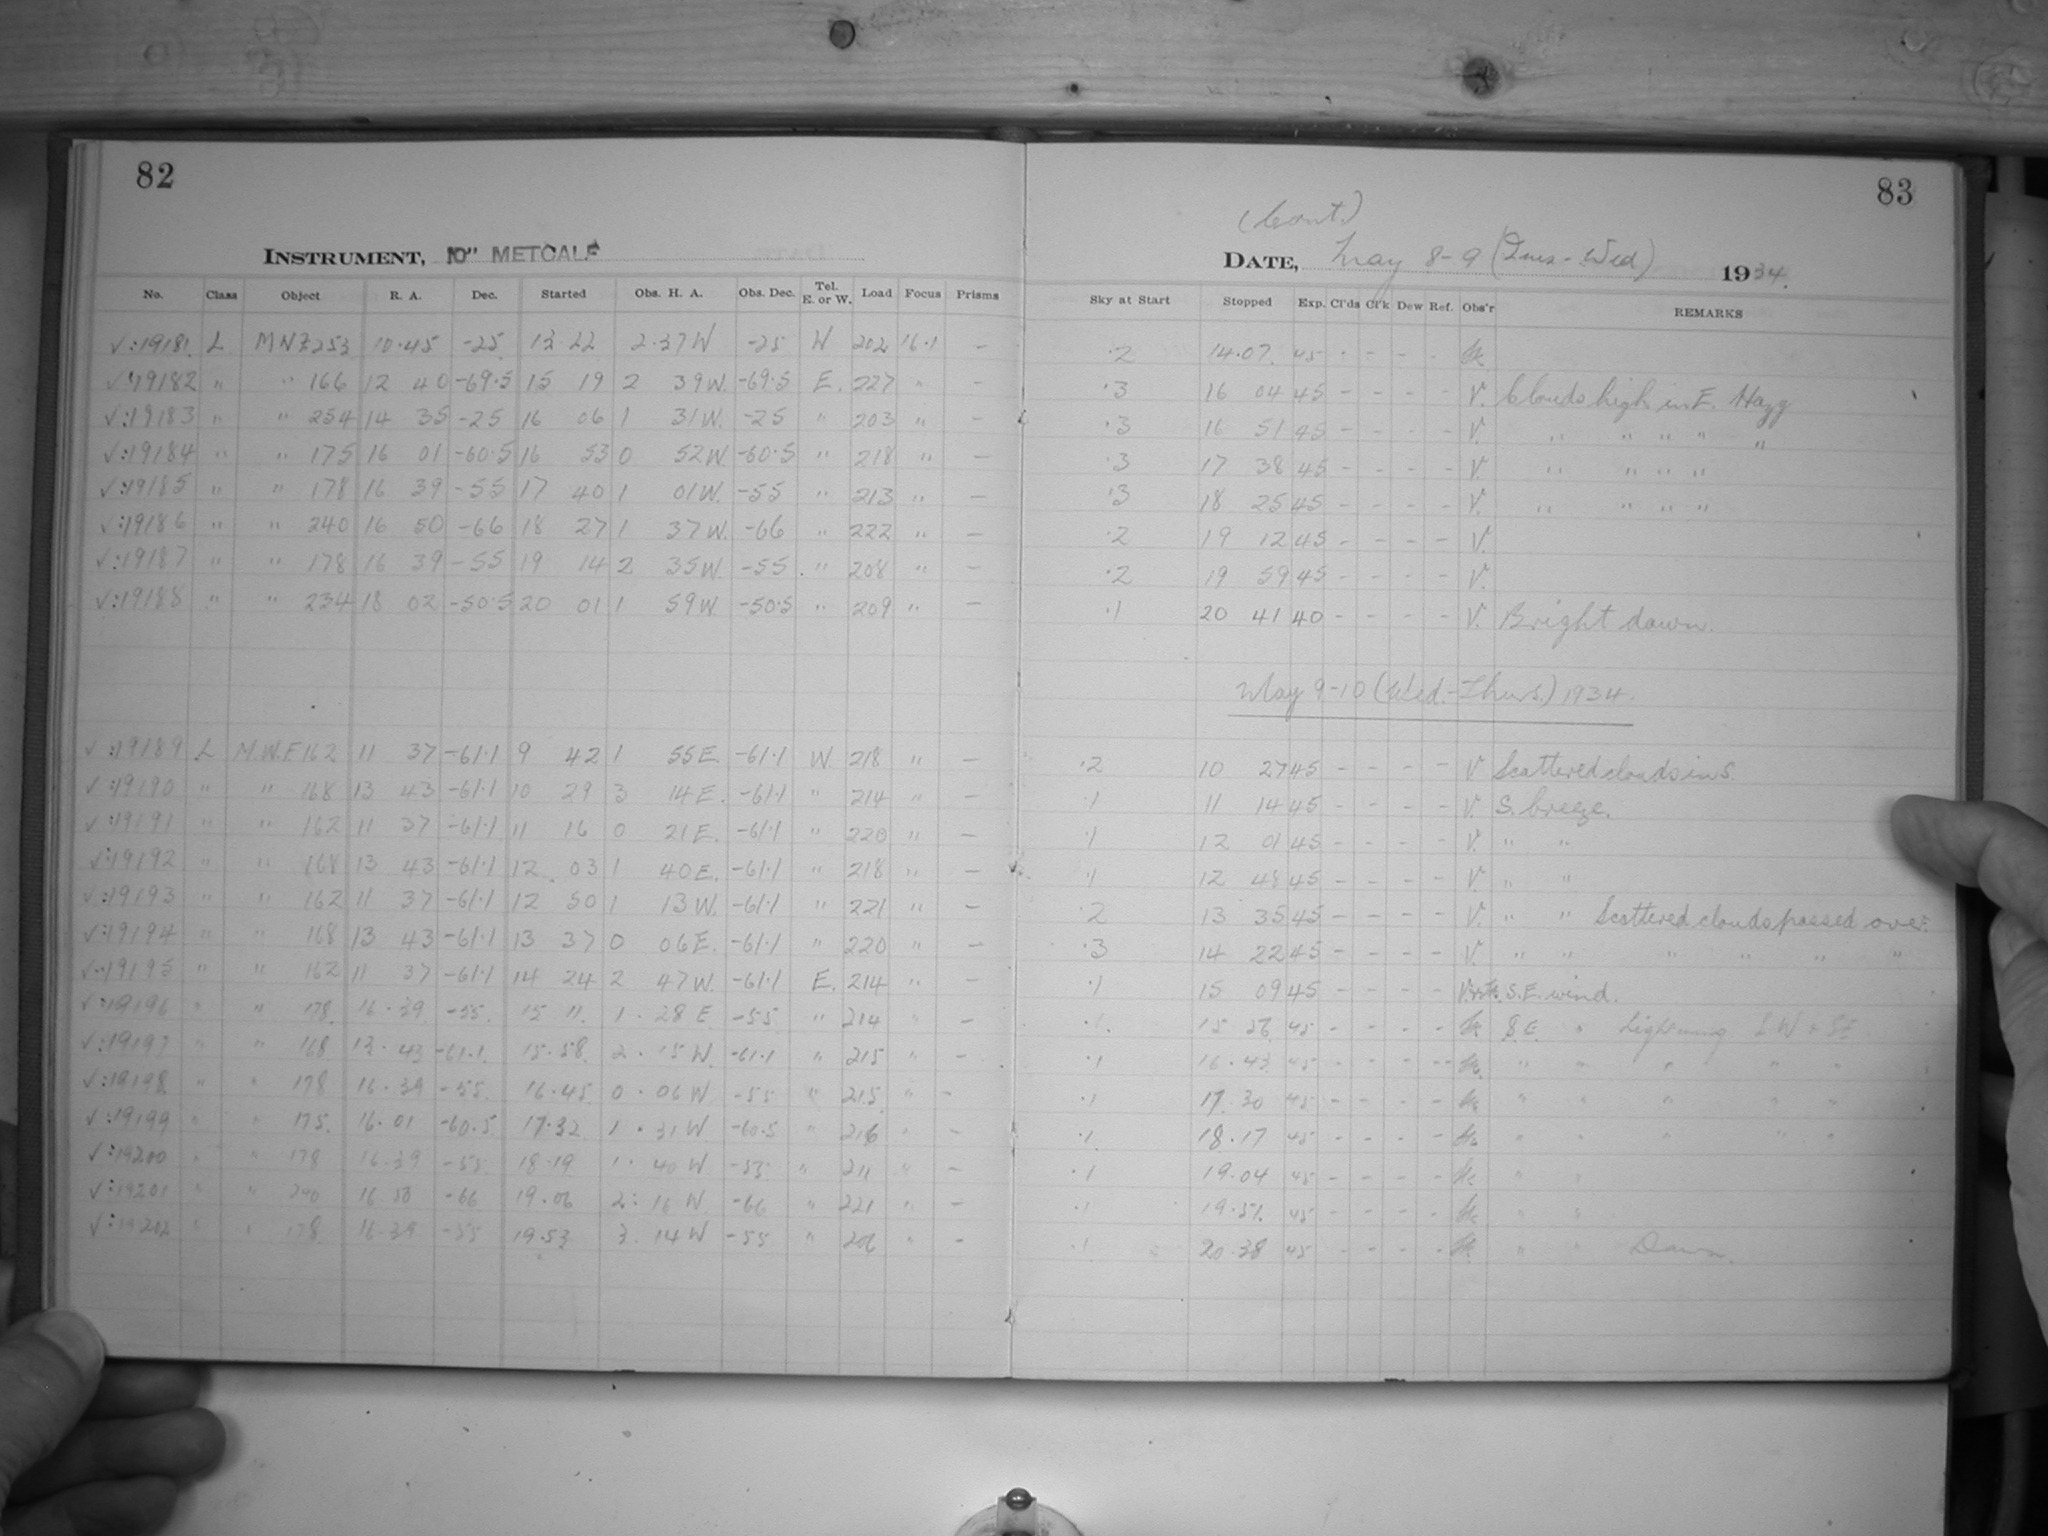 82
INSTRUMENT, 10" METCALF
No. Class Object R. A. Dec. Started Obs. H. A. Obs. Dec. Tel. E. or W. Load Focus Prisms
√:19181 L 253 10·45 -25 13 22 2·37 W -25 W 202 16·1 -
√:19182 " " 166 12 40 -69·5 15 19 2 39W. -69·5 E. 227 " -
√:19183 " " 254 14 35 -25 16 06 1 31W. -25 " 203 " -
√:19184 " " 175 16 01 -60·5 16 53 0 52W -60·5 " 218 " -
√:19185 " " 178 16 39 -55 17 40 1 01W. -55 " 213 " -
√:19186 " " 240 16 50 -66 18 27 1 37W. -66 " 222 " -
√:19187 " " 178 16 39 -55 19 14 2 35W. -55 " 208 " -
√:19188 " " 234 18 02 -50·5 20 01 1 59W. -50·5 " 209 " -
√:19189 L M.W.F. 162 11 37 -61·1 9 42 1 55E -61·1 W. 218 " -
√:19190 " " 168 13 43 -61·1 10 29 3 14E. -61·1 " 214 " -
√:19191 " " 162 11 37 -61·1 11 16 0 21E. -61·1 " 220 " -
√:19192 " " 168 13 43 -61·1 12 03 1 40E. -61·1 " 218 " -
√:19193 " " 162 11 37 -61·1 12 50 1 13W. -61·1 " 221 " -
√:19194 " " 168 13 43 -61·1 13 37 0 06E. -61·1 " 220 " -
√:19195 " " 162 11 37 -61·1 14 24 2 47W. -61·1 E. 214 " -
√:19196 " " 178 16·39 -55. 15 11. 1·28 E -55 " 214 " -
√:19197 " " 168 13·43 -61·1. 15·58. 2·15 W. -61·1 " 215 " -
√:19198 " " 178 16·39 -55. 16·45. 0·06 W -55 " 215 " -
√:19199 " " 175. 16·01 -60.5. 17·32. 1·31 W. -60·5 " 216 " -
√:19200 " " 178 16·39 -55 18·19 1·40 W -55 " 211 " -
√:19201 " " 240 16 50 -66 19·06 2:16 W. -66 " 221 " -
√:19202 " " 178. 16·39 -55 19·53 3·14W -55 " 206 " -
83
(Cont.)
DATE, May 8-9 (Tues-Wed) 1934.
Sky at Start Stopped Exp. Cl'ds Cl'k Dew Ref. Obs'r REMARKS
·2 14·07. 45 - - - -
·3 16 04 45 - - - - V. Clouds high in E. Hazy
·3 16 51 45 - - - - V. " " " " "
·3 17 38 45 - - - - V. " " " "
·3 18 25 45 - - - - V. " " " "
·2 19 12 45 - - - - V.
·2 19 59 45 - - - - V.
·1 20 41 40 - - - - V. Bright dawn.
May 9-10 (Wed.-Thurs.) 1934.
·2 10 27 45 - - - - V Scattered clouds in S.
·1 11 14 45 - - - - V. S. breeze.
·1 12 01 45 - - - - V. " "
·1 12 48 45 - - - - V. " "
·2 13 35 45 - - - - V. " " Scattered clouds passed over.
·3 14 22 45 - - - - V " " " " " "
·1 15 09 45 - - - - S.E. wind.
·1 15 56 45 - - - - S.E. " Lightning
·1 16·43 45 - - - - " " " " "
·1 17 30 45 - - - - " " " " "
·1 18·17 45 - - - - " " " " "
·1 19·04 45 - - - - " "
·1 19·51. 45 - - - - " "
·1 20·38 45 - - - - " " Dawn.